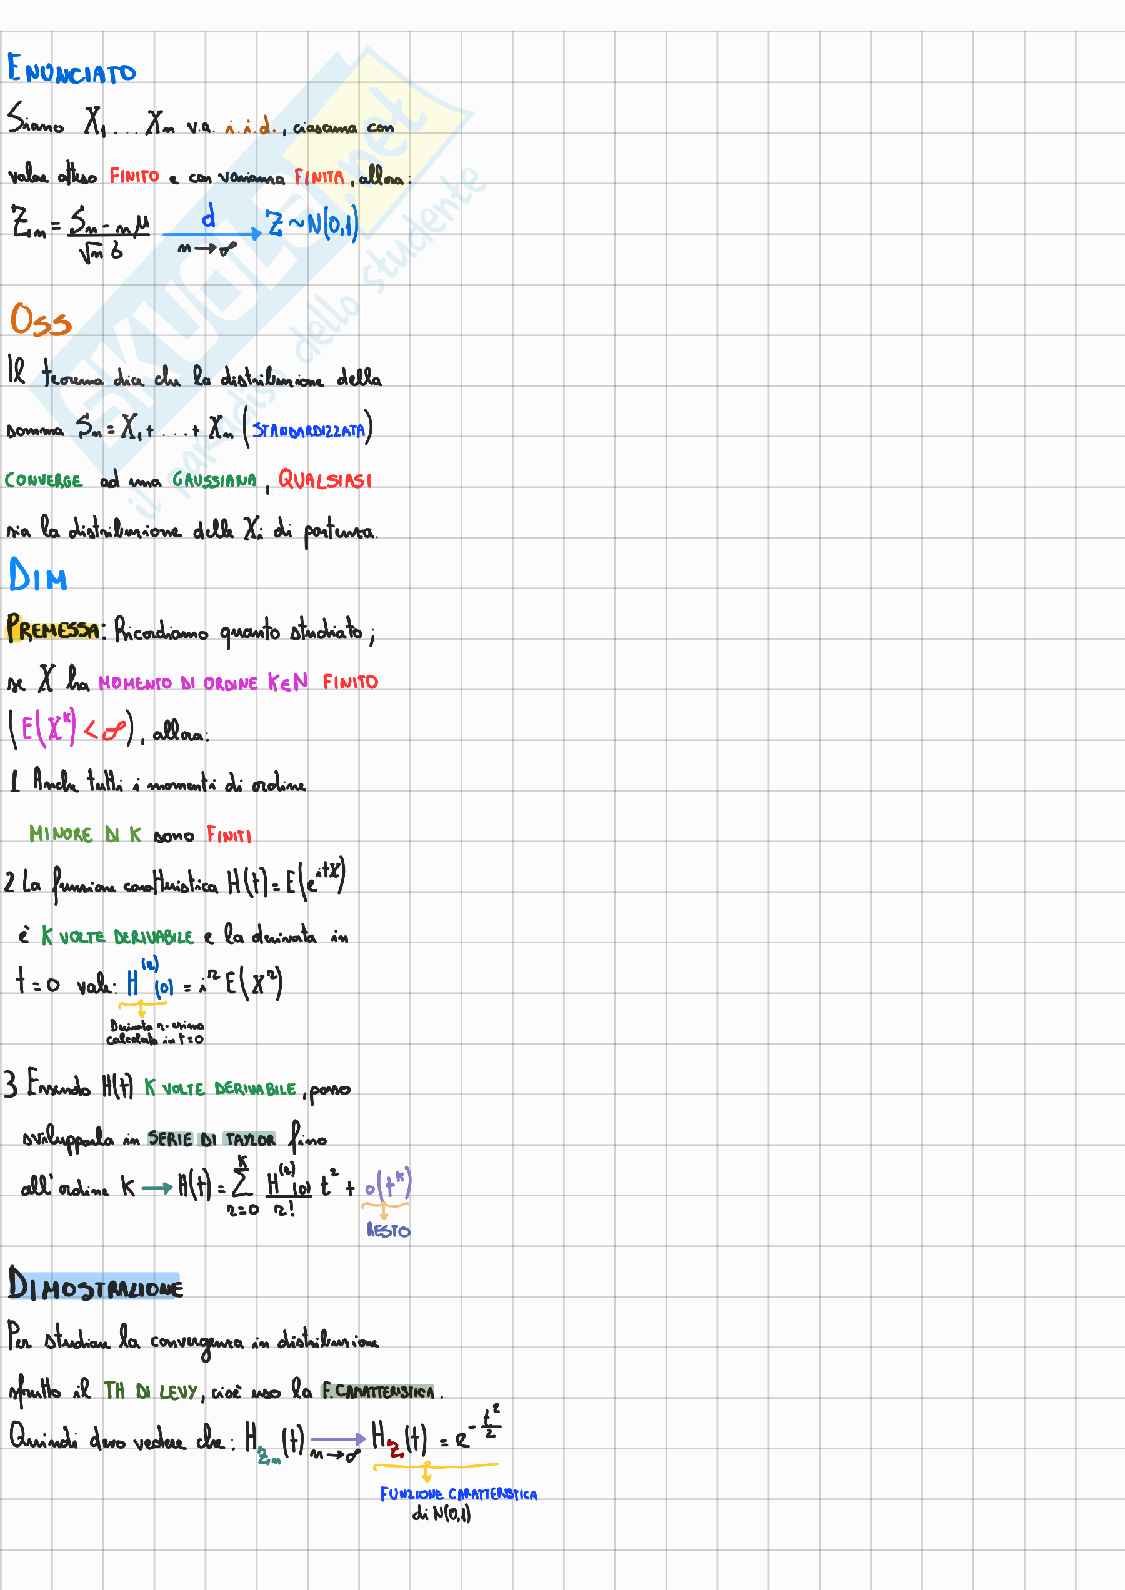 ENUNCIATO
Siano X₁ ... Xₙ v.a. i.i.d., ciascuna con
valore atteso FINITO e con varianza FINITA, allora:
Zₙ = (Sₙ - nμ)/(√n σ) →(d, n→∞) Z ~ N(0,1)
OSS
Il teorema dice che la distribuzione della
somma Sₙ = X₁ + ... + Xₙ (STANDARDIZZATA)
CONVERGE ad una GAUSSIANA, QUALSIASI
sia la distribuzione delle Xᵢ di partenza.
DIM
PREMESSA: Ricordiamo quanto studiato;
se X ha MOMENTO DI ORDINE K∈N FINITO
(E(Xᴷ) < ∞), allora:
1 Anche tutti i momenti di ordine
MINORE DI K sono FINITI
2 La funzione caratteristica H(t) = E(e^{itX})
è K VOLTE DERIVABILE e la derivata in
t=0 vale: H^{(r)}(0) = i^r E(X^r)
Derivata r-esima
calcolata in t=0
3 Essendo H(t) K VOLTE DERIVABILE, posso
svilupparla in SERIE DI TAYLOR fino
all'ordine K → H(t) = Σ_{r=0}^{K} H^{(r)}(0)/r! t^r + o(t^K)
RESTO
DIMOSTRAZIONE
Per studiare la convergenza in distribuzione
sfrutto il TH DI LEVY, cioè uso la F. CARATTERISTICA.
Quindi devo vedere che: H_{Zₙ}(t) →(n→∞) H_Z(t) = e^{-t²/2}
FUNZIONE CARATTERISTICA
di N(0,1)
SKUOLA.net
il paradiso dello studente